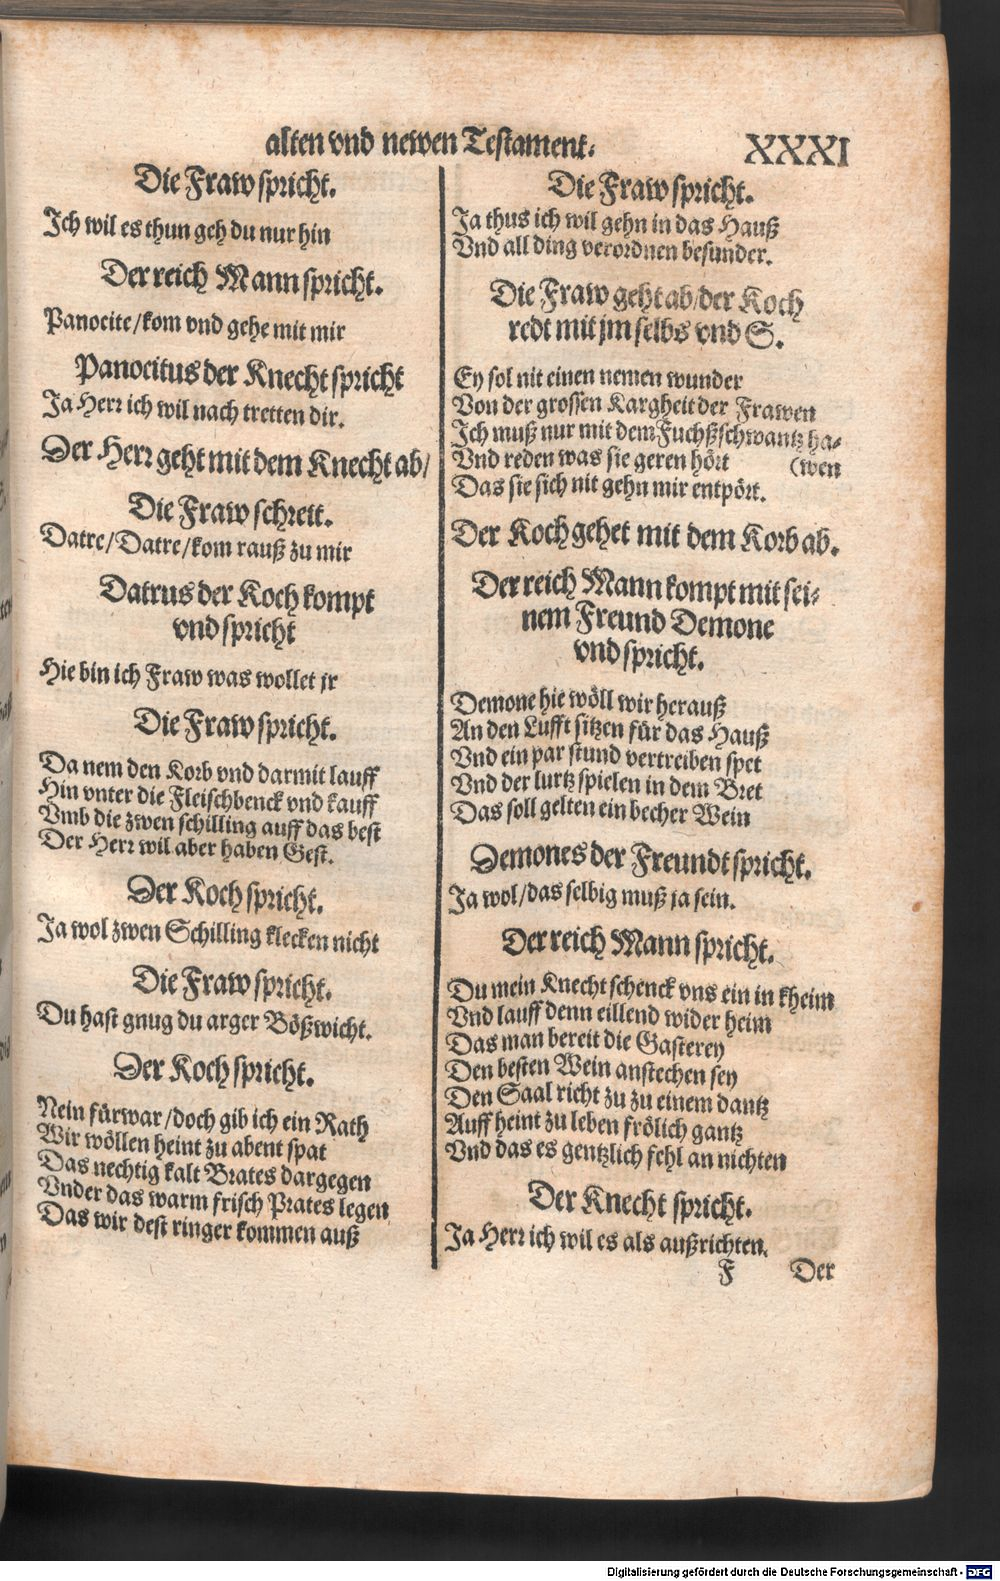 alten vnd newen Testament.
XXXI
Die Fraw spricht.
Ich wil es thun geh du nur hin
Der reich Mann spricht.
Panocite/kom vnd gehe mit mir
Panocitus der Knecht spricht
Ja Herr ich wil nach tretten dir.
Der Herr geht mit dem Knecht ab/
Die Fraw schreit.
Datre/Datre/kom rauß zu mir
Datrus der Koch kompt
vnd spricht
Hie bin ich Fraw was wollet jr
Die Fraw spricht.
Da nem den Korb vnd darmit lauff
Hin vnter die Fleischbenck vnd kauff
Vmb die zwen schilling auff das best
Der Herr wil aber haben Gest.
Der Koch spricht.
Ja wol zwen Schilling klecken nicht
Die Fraw spricht.
Du hast gnug du arger Bößwicht.
Der Koch spricht.
Nein fürwar/doch gib ich ein Rath
Wir wöllen heint zu abent spat
Das nechtig kalt Brates dargegen
Vnder das warm frisch Prates legen
Das wir dest ringer kommen auß
Die Fraw spricht.
Ja thus ich wil gehn in das Hauß
Vnd all ding verordnen besunder.
Die Fraw geht ab/der Koch
redt mit jm selbs vnd S.
Ey sol nit einen nemen wunder
Von der grossen Kargheit der Frawen
Ich muß nur mit dem Fuchßschwantz ha-
Vnd reden was sie geren hört (wen
Das sie sich nit gehn mir entpört.
Der Koch gehet mit dem Korb ab.
Der reich Mann kompt mit sei-
nem Freund Demone
vnd spricht.
Demone hie wöll wir herauß
An den Lufft sitzen für das Hauß
Vnd ein par stund vertreiben spet
Vnd der lurtz spielen in dem Bret
Das soll gelten ein becher Wein
Demones der Freundt spricht.
Ja wol/das selbig muß ja sein.
Der reich Mann spricht.
Du mein Knecht schenck vns ein in kheim
Vnd lauff denn eillend wider heim
Das man bereit die Gasterey
Den besten Wein anstechen sey
Den Saal richt zu zu einem dantz
Auff heint zu leben frölich gantz
Vnd das es gentzlich fehl an nichten
Der Knecht spricht.
Ja Herr ich wil es als außrichten.
F Der
Digitalisierung gefördert durch die Deutsche Forschungsgemeinschaft - DFG